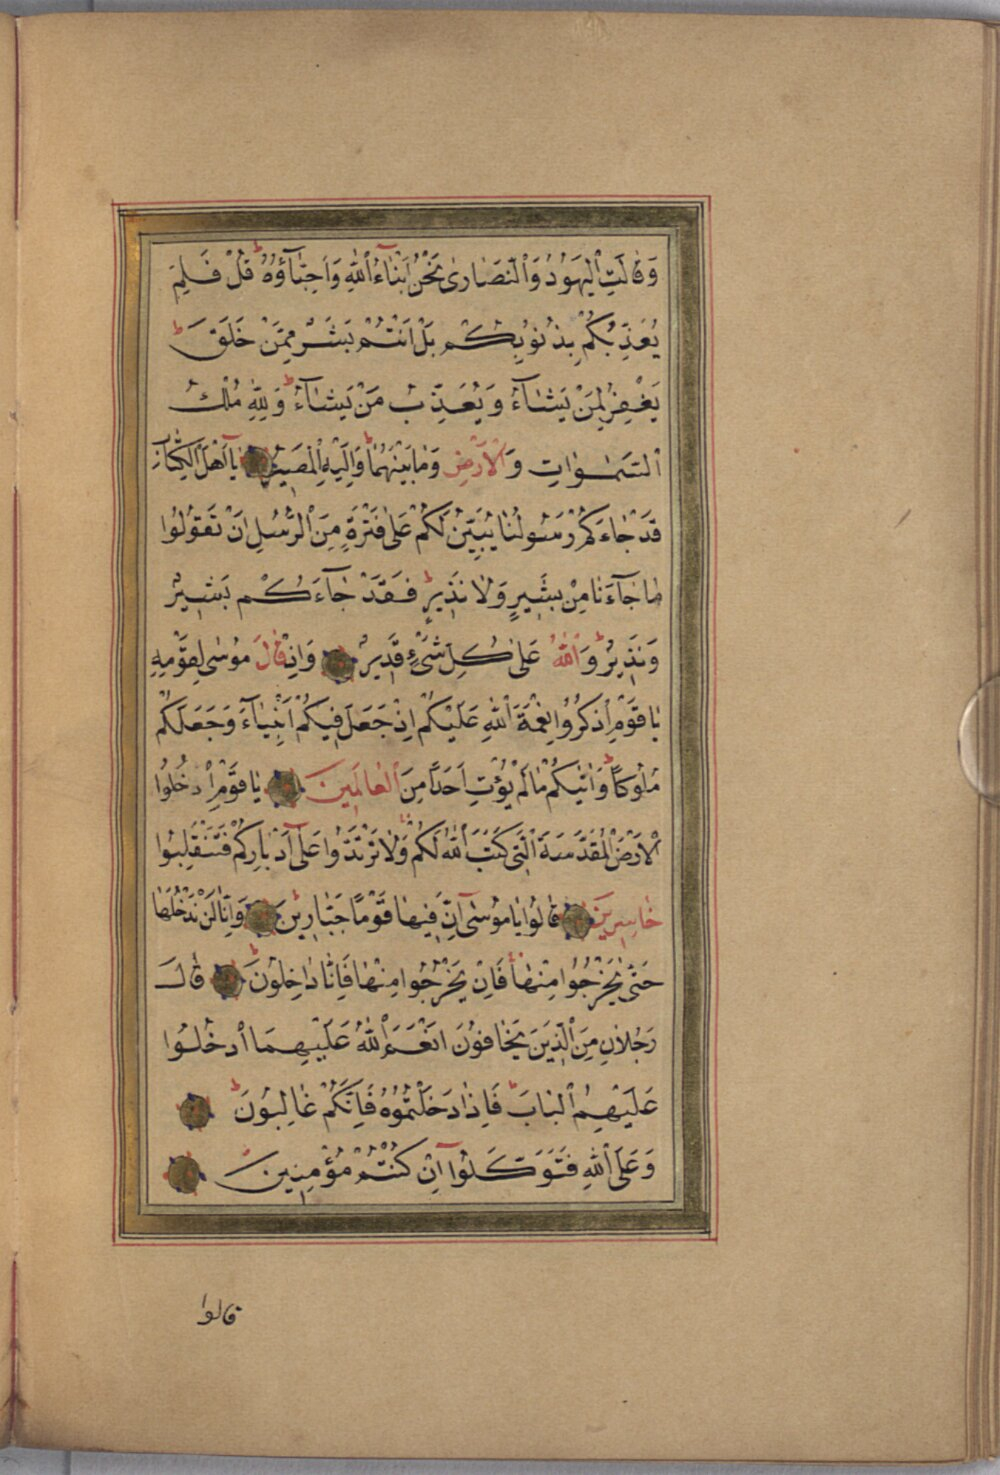 وَقَالَتِ الْيَهُودُ وَالنَّصَارٰى نَحْنُ اَبْنَاءُ اللّٰهِ وَاَحِبَّاؤُهُ قُلْ فَلِمَ
يُعَذِّبُكُمْ بِذُنُوبِكُمْ بَلْ اَنْتُمْ بَشَرٌ مِمَّنْ خَلَقَ
يَغْفِرُ لِمَنْ يَشَاءُ وَيُعَذِّبُ مَنْ يَشَاءُ وَلِلّٰهِ مُلْكُ
السَّمٰوَاتِ وَالْاَرْضِ وَمَا بَيْنَهُمَا وَاِلَيْهِ الْمَصِيرُ يَا اَهْلَ الْكِتَابِ
قَدْ جَاءَكُمْ رَسُولُنَا يُبَيِّنُ لَكُمْ عَلٰى فَتْرَةٍ مِنَ الرُّسُلِ اَنْ تَقُولُوا
مَا جَاءَنَا مِنْ بَشِيرٍ وَلَا نَذِيرٍ فَقَدْ جَاءَكُمْ بَشِيرٌ
وَنَذِيرٌ وَاللّٰهُ عَلٰى كُلِّ شَيْءٍ قَدِيرٌ وَاِذْ قَالَ مُوسٰى لِقَوْمِهِ
يَا قَوْمِ اذْكُرُوا نِعْمَةَ اللّٰهِ عَلَيْكُمْ اِذْ جَعَلَ فِيكُمْ اَنْبِيَاءَ وَجَعَلَكُمْ
مُلُوكًا وَاٰتٰيكُمْ مَا لَمْ يُؤْتِ اَحَدًا مِنَ الْعَالَمِينَ يَا قَوْمِ ادْخُلُوا
الْاَرْضَ الْمُقَدَّسَةَ الَّتِي كَتَبَ اللّٰهُ لَكُمْ وَلَا تَرْتَدُّوا عَلٰى اَدْبَارِكُمْ فَتَنْقَلِبُوا
خَاسِرِينَ قَالُوا يَا مُوسٰى اِنَّ فِيهَا قَوْمًا جَبَّارِينَ وَاِنَّا لَنْ نَدْخُلَهَا
حَتّٰى يَخْرُجُوا مِنْهَا فَاِنْ يَخْرُجُوا مِنْهَا فَاِنَّا دَاخِلُونَ قَالَ
رَجُلَانِ مِنَ الَّذِينَ يَخَافُونَ اَنْعَمَ اللّٰهُ عَلَيْهِمَا ادْخُلُوا
عَلَيْهِمُ الْبَابَ فَاِذَا دَخَلْتُمُوهُ فَاِنَّكُمْ غَالِبُونَ
وَعَلَى اللّٰهِ فَتَوَكَّلُوا اِنْ كُنْتُمْ مُؤْمِنِينَ
قالوا